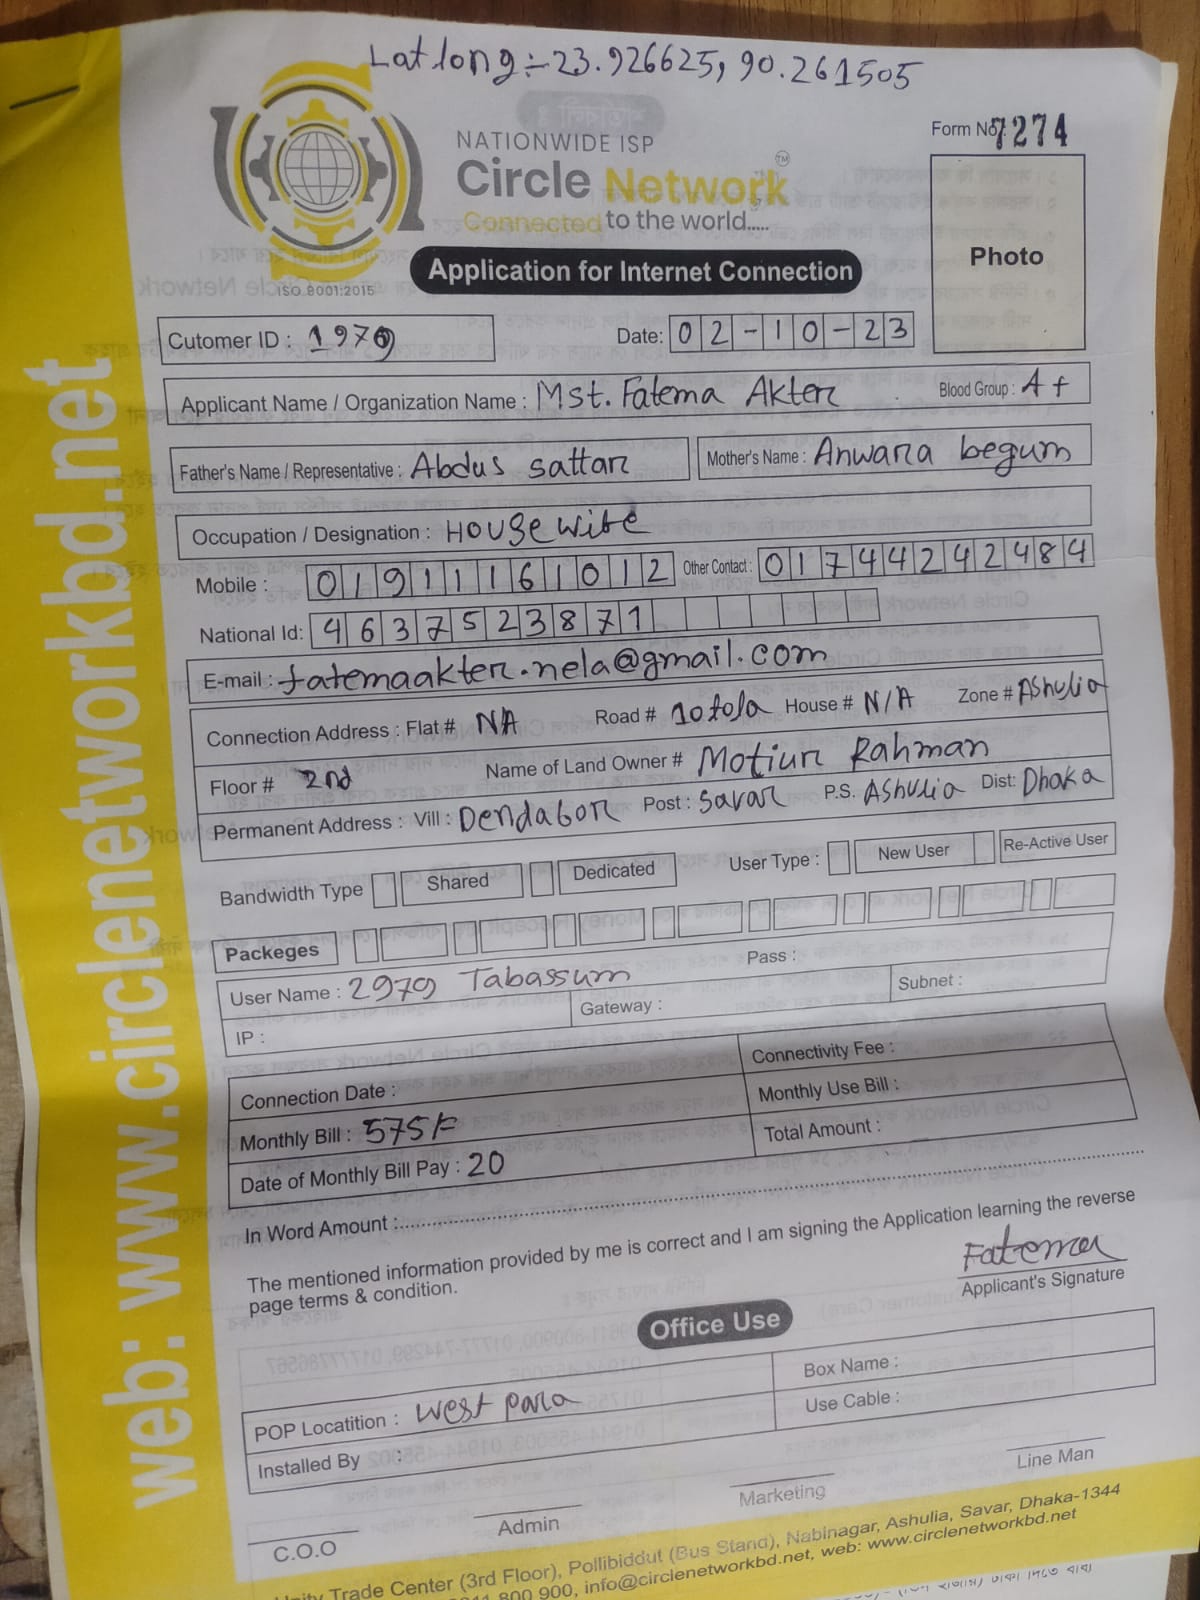 Lat long:- 23.926625, 90.261505
NATIONWIDE ISP
Form No: 7274
Circle Network TM
Connected to the world.....
ISO 9001:2015
Application for Internet Connection
Photo
Cutomer ID : 1979
Date: 02-10-23
Applicant Name / Organization Name : Mst. Fatema Akter
Blood Group : A+
Father's Name / Representative : Abdus sattar
Mother's Name : Anwara begum
Occupation / Designation : House wife
Mobile : 01911161012 Other Contact : 01744242484
National Id: 4637523871
E-mail : fatemaakter.nela@gmail.com
Connection Address : Flat # NA Road # 10tola House # N/A Zone # Ashulia
Floor # 2nd Name of Land Owner # Motiur Rahman
Permanent Address : Vill : Dendabor Post : Savar P.S. Ashulia Dist: Dhaka
Bandwidth Type Shared Dedicated User Type : New User Re-Active User
Packeges
User Name : 2979 Tabassum Pass :
IP : Gateway : Subnet :
Connection Date : Connectivity Fee :
Monthly Bill : 575/= Monthly Use Bill :
Date of Monthly Bill Pay : 20 Total Amount :
In Word Amount :
The mentioned information provided by me is correct and I am signing the Application learning the reverse
page terms & condition.
Fatema
Applicant's Signature
Office Use
POP Locatition : West para Box Name :
Installed By : Use Cable :
C.O.O Admin Marketing Line Man
Trade Center (3rd Floor), Pollibiddut (Bus Stand), Nabinagar, Ashulia, Savar, Dhaka-1344
800 900, info@circlenetworkbd.net, web: www.circlenetworkbd.net
web: www.circlenetworkbd.net